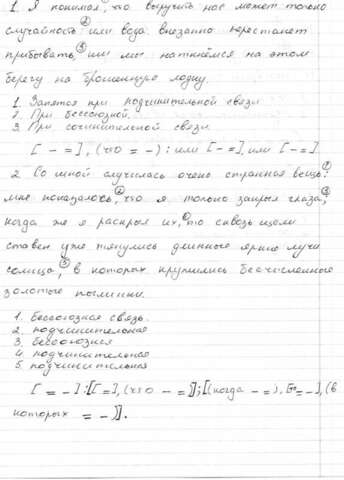 1. Я понимал, что выручить нас может только
случайность: или вода внезапно перестанет
прибывать, или мы наткнёмся на этом
берегу на брошенную лодку.
1. Запятая при подчинительной связи
2. При бессоюзной.
3. При сочинительной связи.
[ - = ], (что = - ) : или [ - = ], или [ - = ]
2. Со мной случилась очень странная вещь:
мне показалось, что я, только закрыл глаза,
когда же я раскрыл их, то сквозь щели
ставен уже тянулись длинные яркие лучи
солнца, в которых кружились бесчисленные
золотые пылинки.
1. Бессоюзная связь.
2. подчинительная
3. бессоюзная
4. подчинительная
5. подчинительная
[ = - ] : [[ = ], (что - = )]; [(когда - = ), [ = - ], (в
которых = - )].